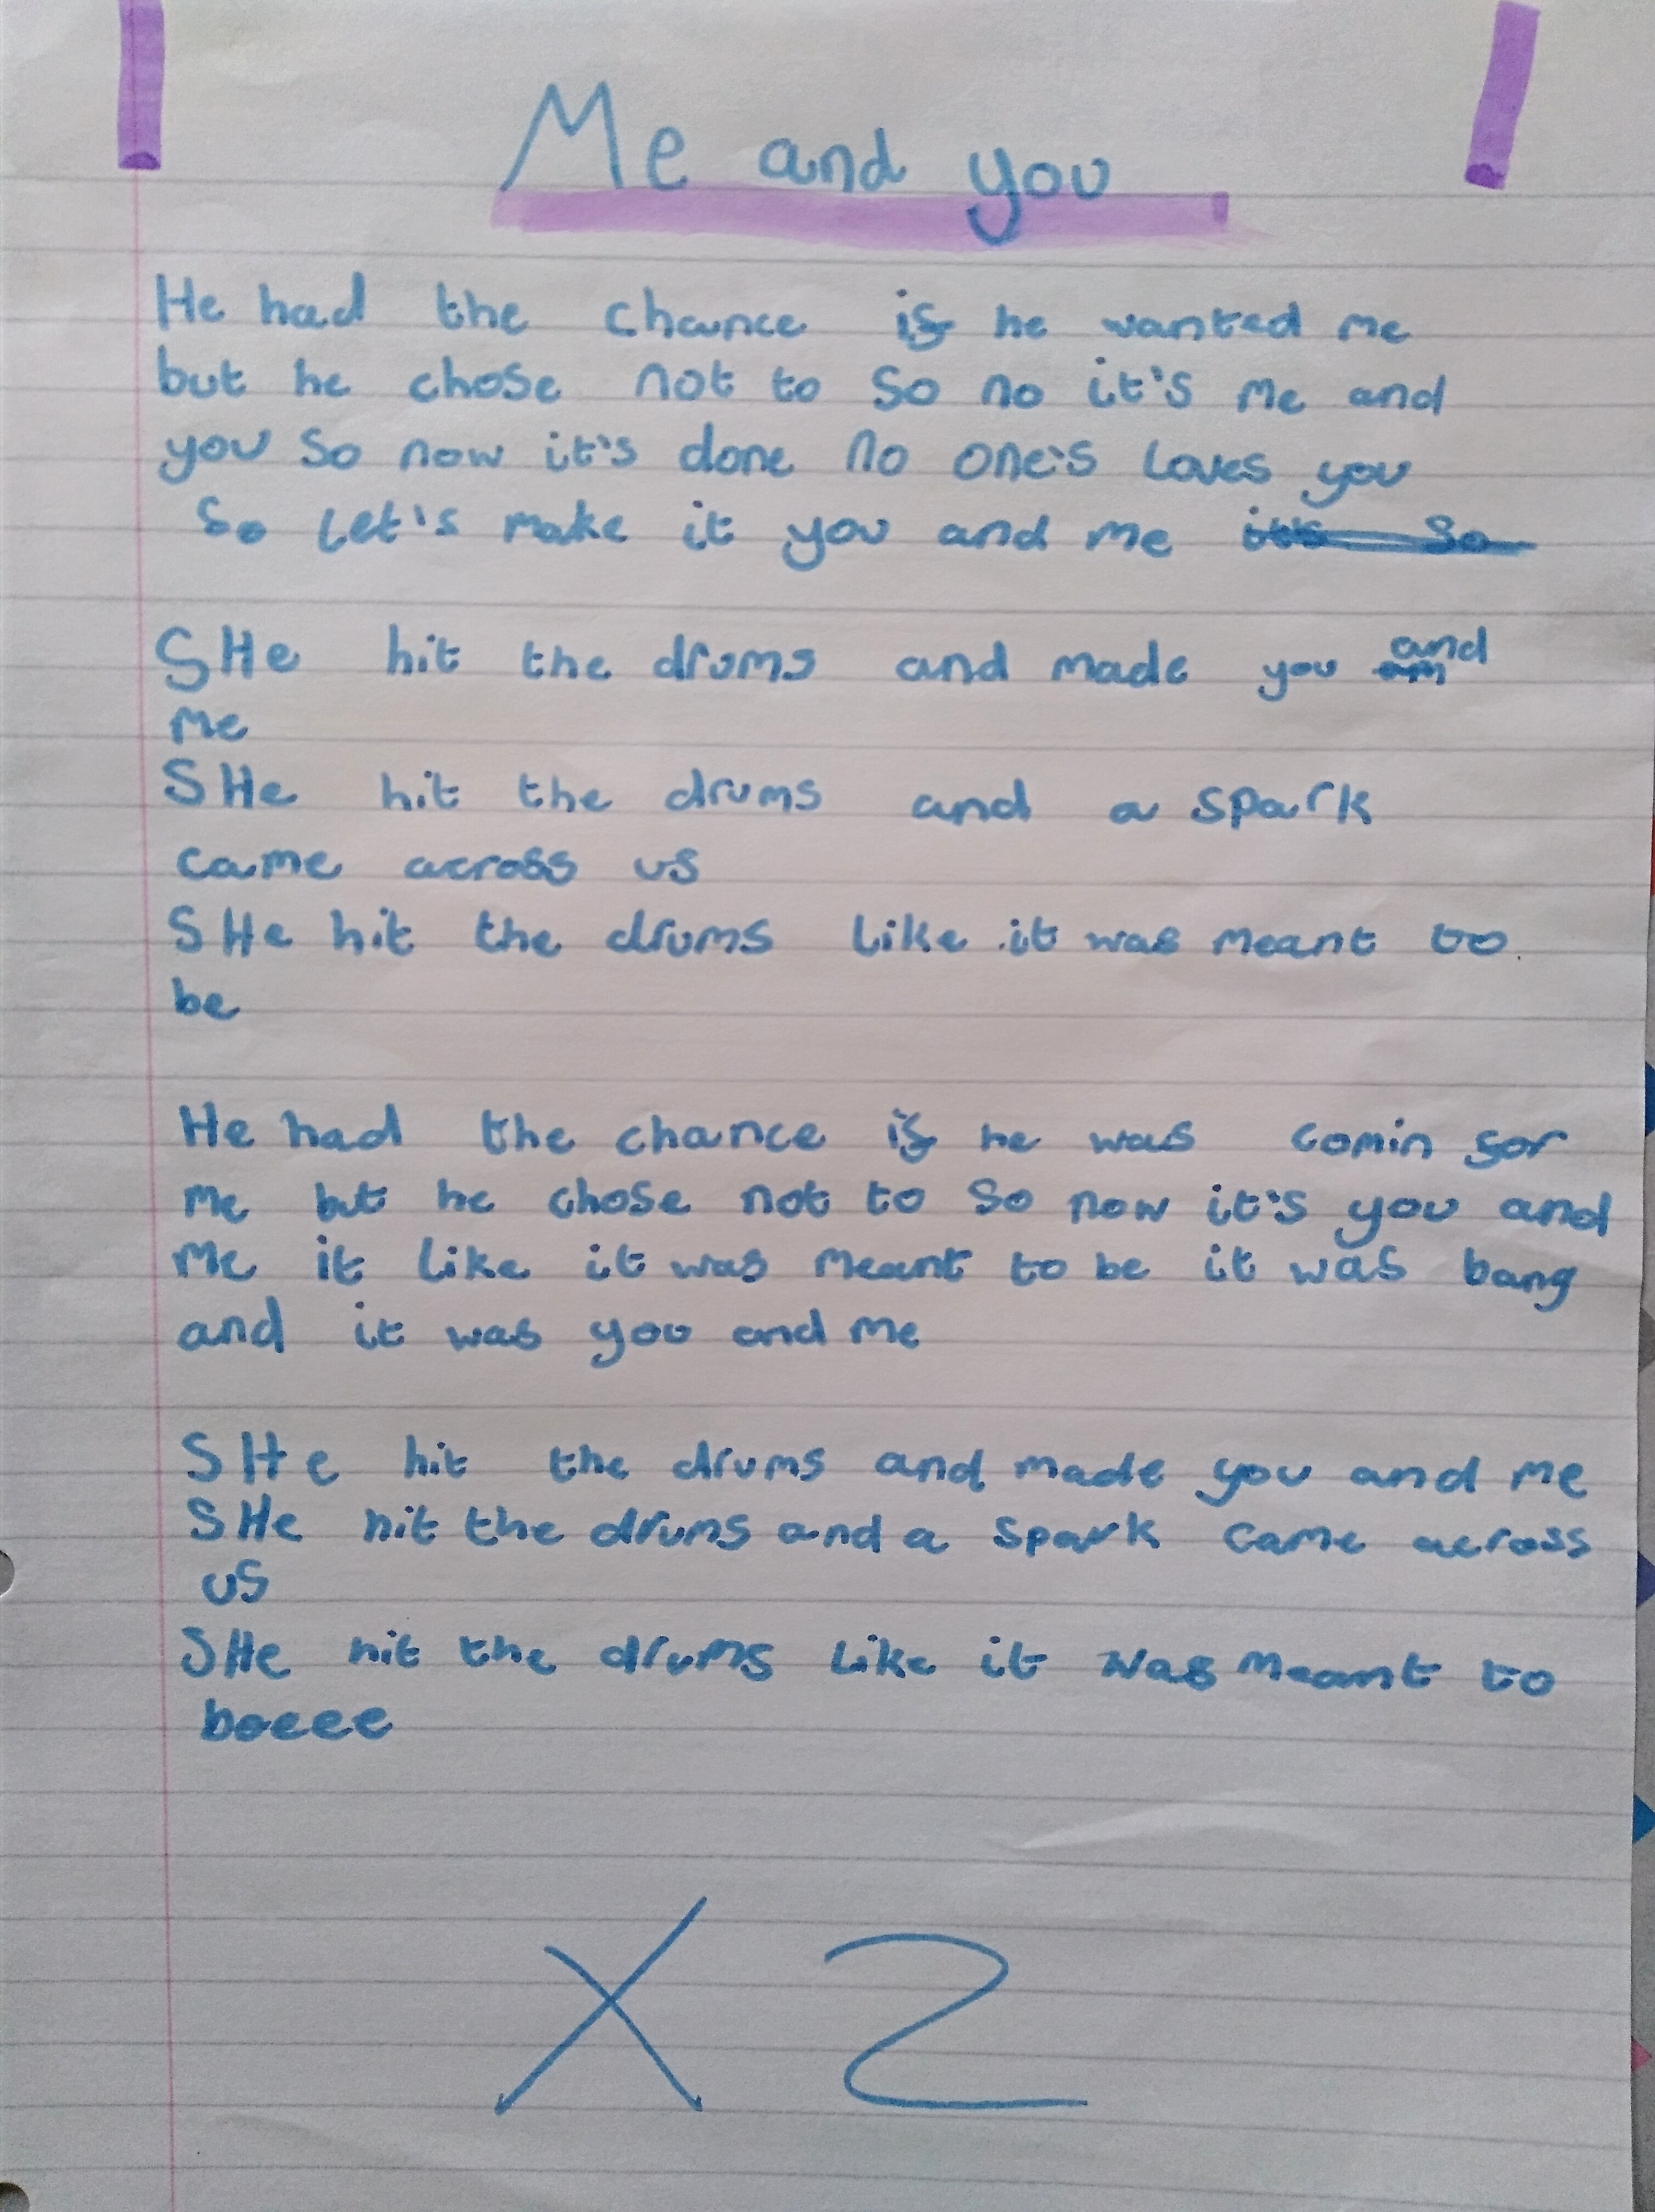 Me and you
He had the chance if he wanted me
but he chose not to So no it's me and
you So now it's done no one's loves you
So let's make it you and me it's So
SHe hit the drums and made you and
me
SHe hit the drums and a spark
came across us
SHe hit the drums like it was meant to
be
He had the chance if he was comin for
me but he chose not to So now it's you and
me it like it was meant to be it was bang
and it was you and me
SHe hit the drums and made you and me
SHe hit the drums and a spark came across
us
SHe hit the drums like it was meant to
beeee
X 2